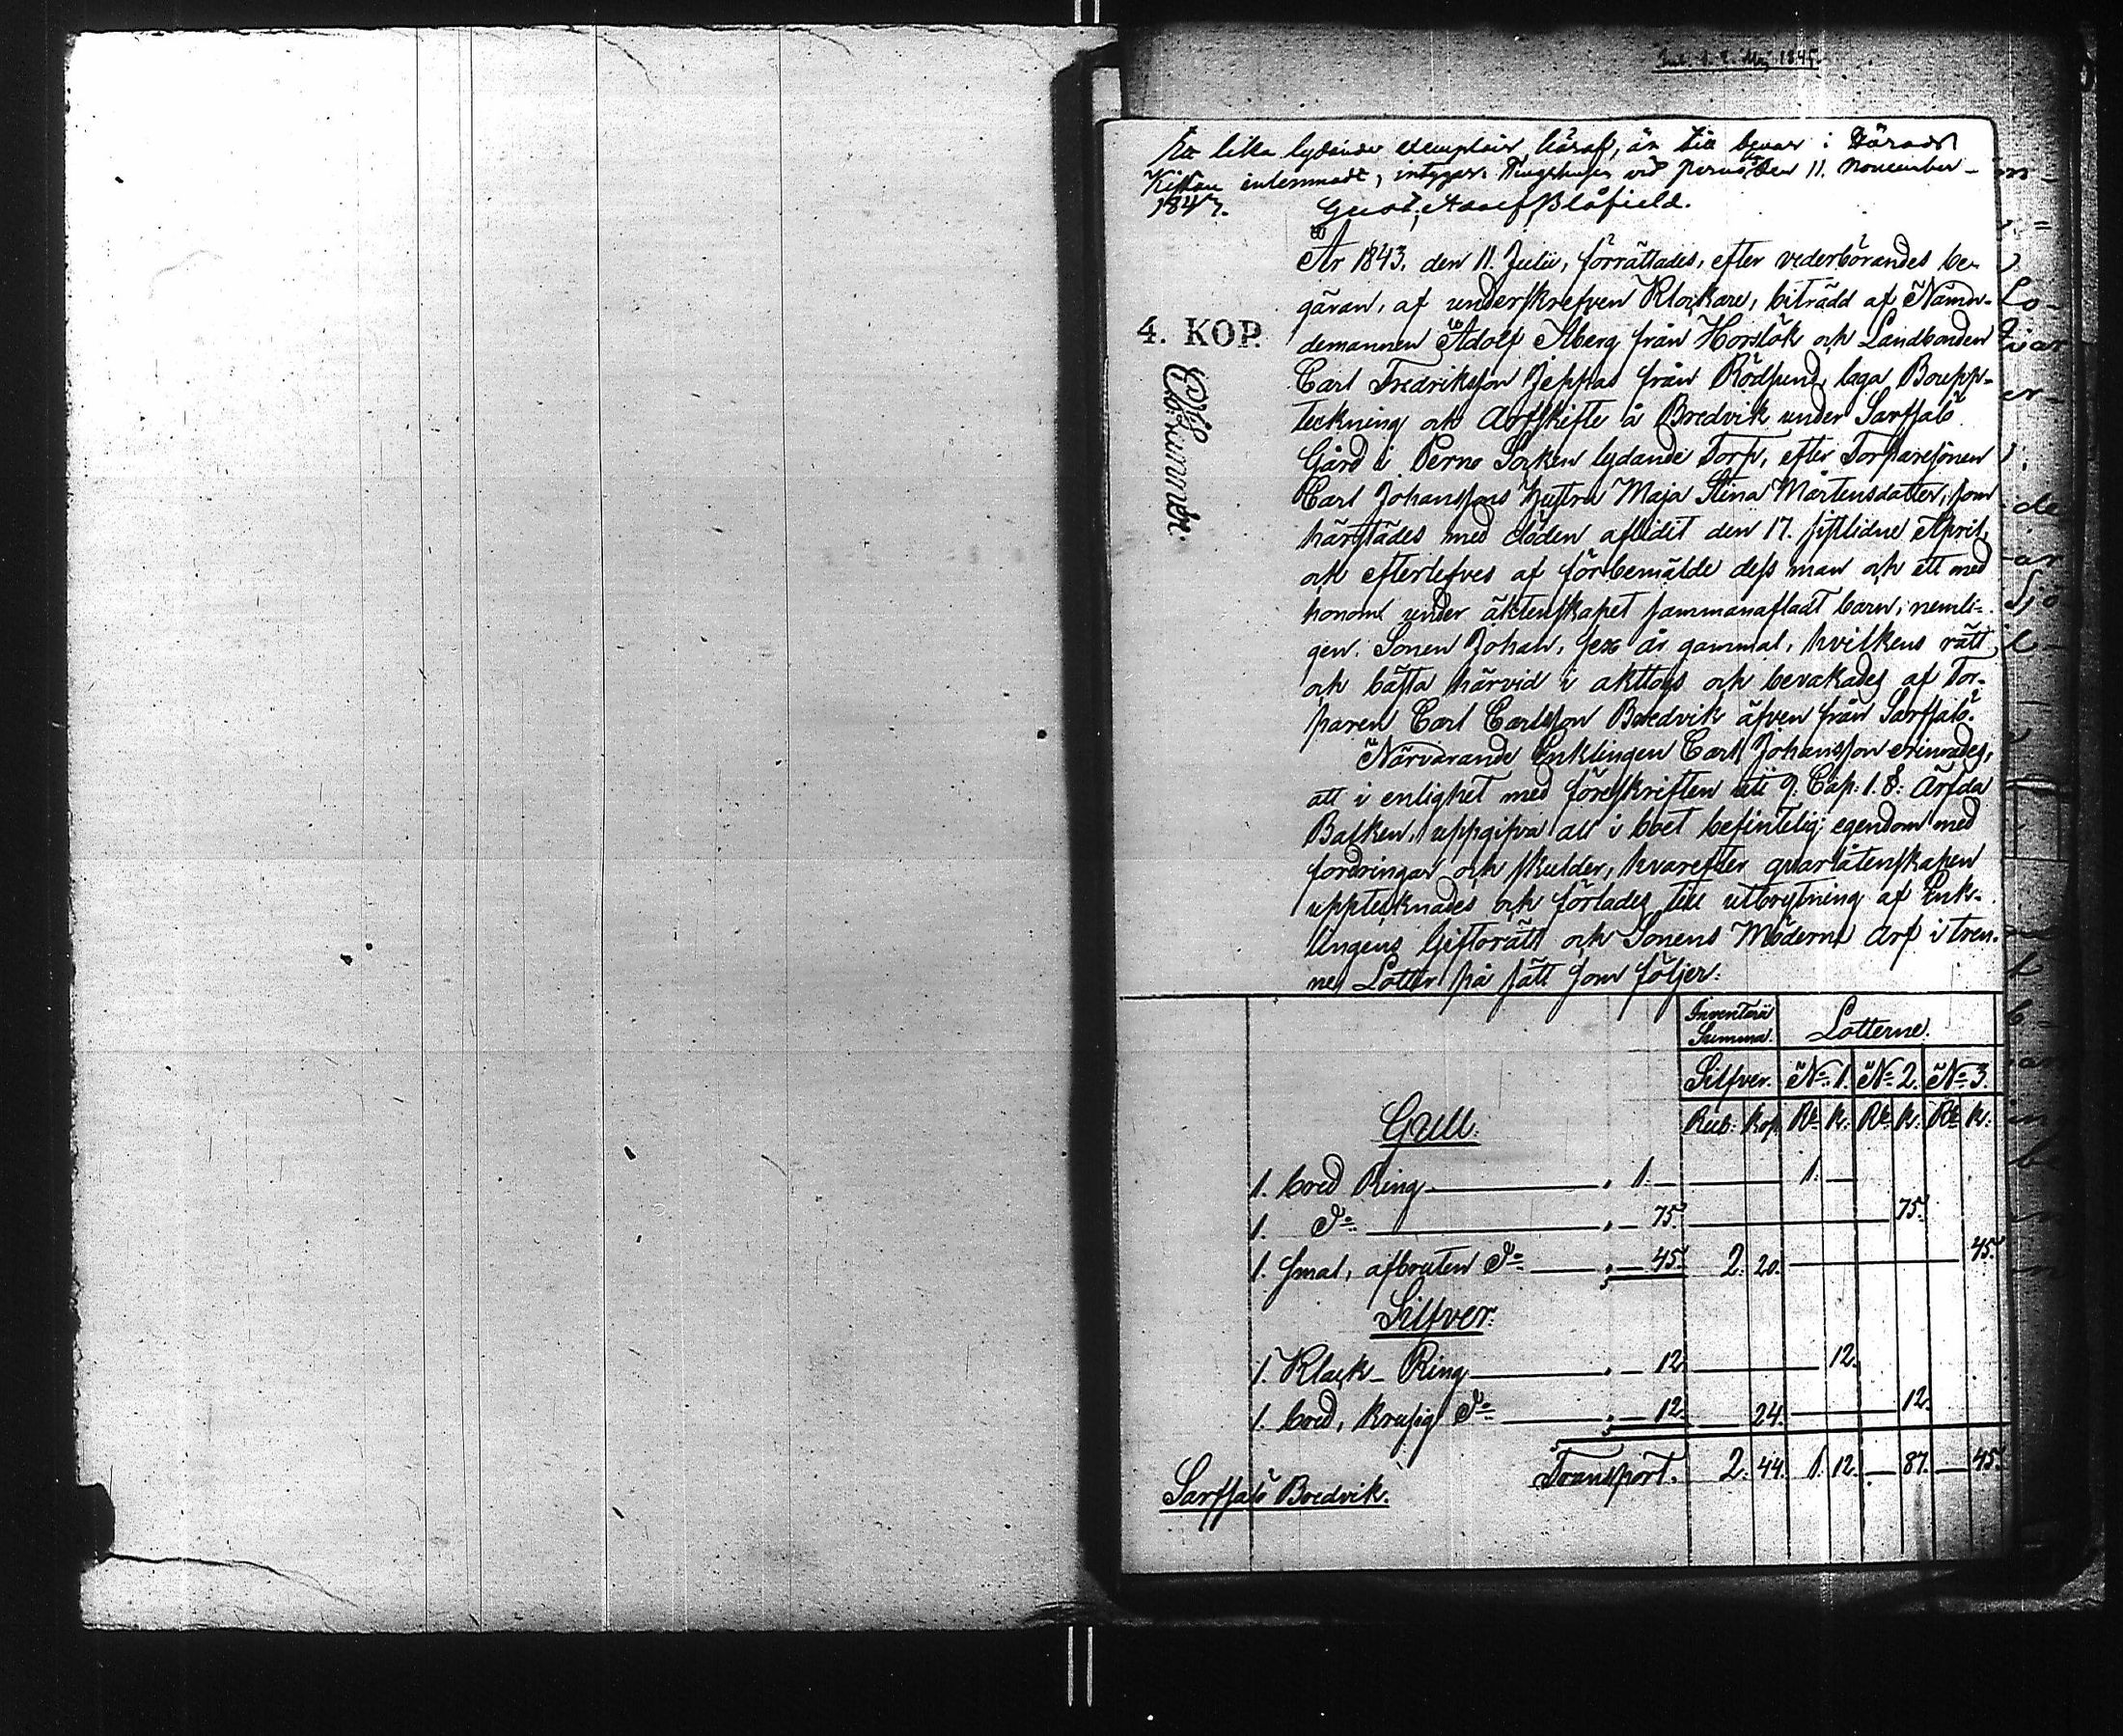 Ett lika lydande exemplair häraf, är till bevar i Härads
Kistan inlemnadt, intygar. Tingshuset vid Perno den 11. November
1847.
Gust. Adolf Blåfield.
År 1843. den 11. Julii, förrättades, efter vederbörandes be-
gäran, af underskrefven Klockare, biträdd af Nämn-
4. KOP.
demannen Adolf Åberg från Horslök och Landbonden
Carl Fredriksson Jeppas från Rödsund, laga Boupp-
teckning och Arfskifte å Bredvik under Sarfsalö
Gård i Perno Socken lydande Torp, efter Torparesonen
Carl Johanssons Hustru Maja Stina Mårtensdatter, som
härstädes med döden aflidit den 17. sistlidne April,
och efterlefves af förbemälde dess man och ett med
honom under äktenskapet sammanafladt barn, nemli-
gen. Sonen Johan, sex år gammal, hvilkens rätt
och bästa härvid i akttogs och bevakades af Tor-
paren Carl Carlsson Bredvik äfven från Sarfsalö.
Närvarande Enklingen Carl Johansson erinrades,
att i enlighet med föreskriften uti 9. Cap. 1. §: Ärfda
Balken, uppgifva all i boet befintelig egendom med
fordringar och skulder, hvarefter qvarlåtenskapen
upptecknades och förlades till utbrytning af Enk-
lingens Giftorätt och Sonens Möderne Arf i tren-
ne Lotter på sätt som följer:
Inventarii
Summa. Lotterne.
Silfver. No. 1. No. 2. No. 3.
Rub: Kop. Rb. k. Rb. k. Rb. k.
Gull.
1. bred Ring 1. 1.
1. Do 75. 75.
1. smal, afbruten Do 45. 2. 20. 45.
Silfver.
1. Klack-Ring 12. 12.
1. bred, krusig Do 12. 24. 12.
Transport. 2. 44. 1. 12. 87. 45.
Sarfsalö Bredvik.